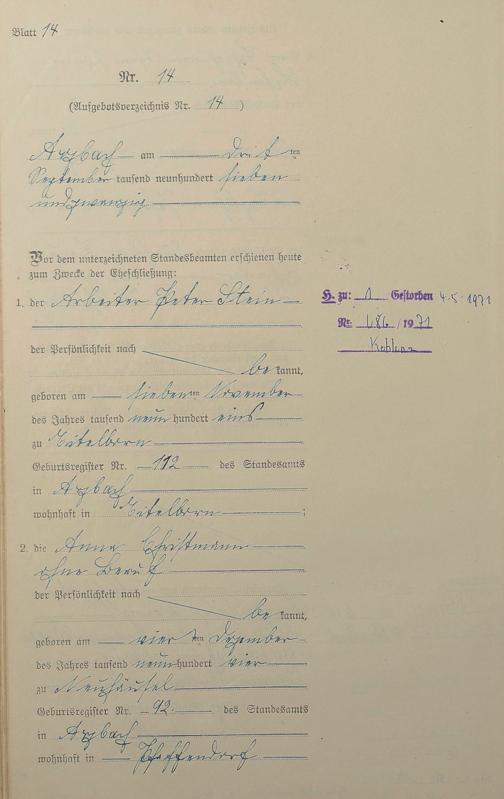 Blatt 14
Nr. 14
(Aufgebotsverzeichnis Nr. 14)
Arzbach am dritten
September tausend neunhundert sieben
undzwanzig
Vor dem unterzeichneten Standesbeamten erschienen heute
zum Zwecke der Eheschließung:
1. der Arbeiter Peter Stein
der Persönlichkeit nach
bekannt,
geboren am siebenten November
des Jahres tausend neunhundert eins
zu Eitelborn
Geburtsregister Nr. 112 des Standesamts
in Arzbach
wohnhaft in Eitelborn;
H. zu: 1 Gestorben 4.5.1971
Nr. 686/1971
Koblenz
2. die Anna Christmann
ohne Beruf
der Persönlichkeit nach
bekannt,
geboren am vierten Dezember
des Jahres tausend neunhundert vier
zu Neuhäusel
Geburtsregister Nr. 92. des Standesamts
in Arzbach
wohnhaft in Pfaffendorf